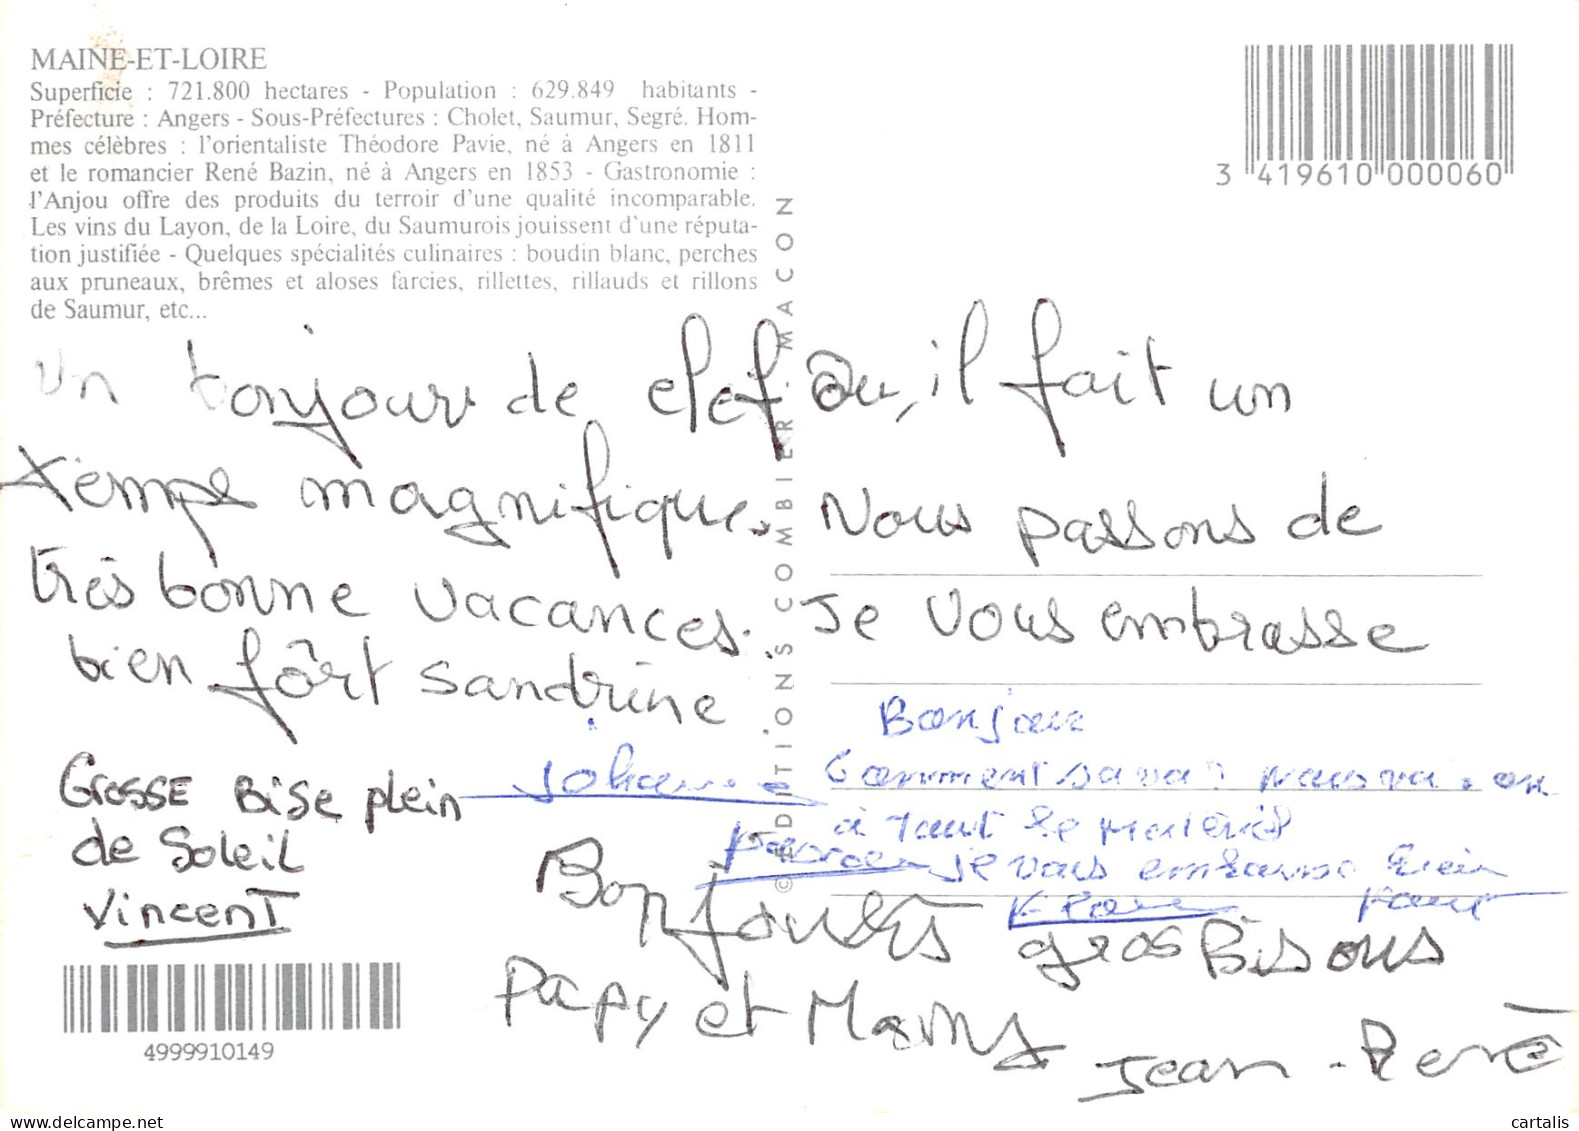 MAINE-ET-LOIRE
Superficie : 721.800 hectares - Population : 629.849 habitants -
Préfecture : Angers - Sous-Préfectures : Cholet, Saumur, Segré. Hom-
mes célèbres : l'orientaliste Théodore Pavie, né à Angers en 1811
et le romancier René Bazin, né à Angers en 1853 - Gastronomie :
l'Anjou offre des produits du terroir d'une qualité incomparable.
Les vins du Layon, de la Loire, du Saumurois jouissent d'une réputa-
tion justifiée - Quelques spécialités culinaires : boudin blanc, perches
aux pruneaux, brêmes et aloses farcies, rillettes, rillauds et rillons
de Saumur, etc...
3 419610 000060
© EDITIONS COMBIER MACON
un bonjour de clef , il fait un
temps magnifique. Nous passons de
très bonne vacances. Je vous embrasse
bien fôrt Sandrine
GROSSE Bise plein
de Soleil
Vincent
Bonjour
Comment sava? nous va. on
à tout le matériel
je vous embrasse bien
Bonjour gros Bisous
Papy et Mamy
Jean-René
4999910149
www.delcampe.net
cartalis